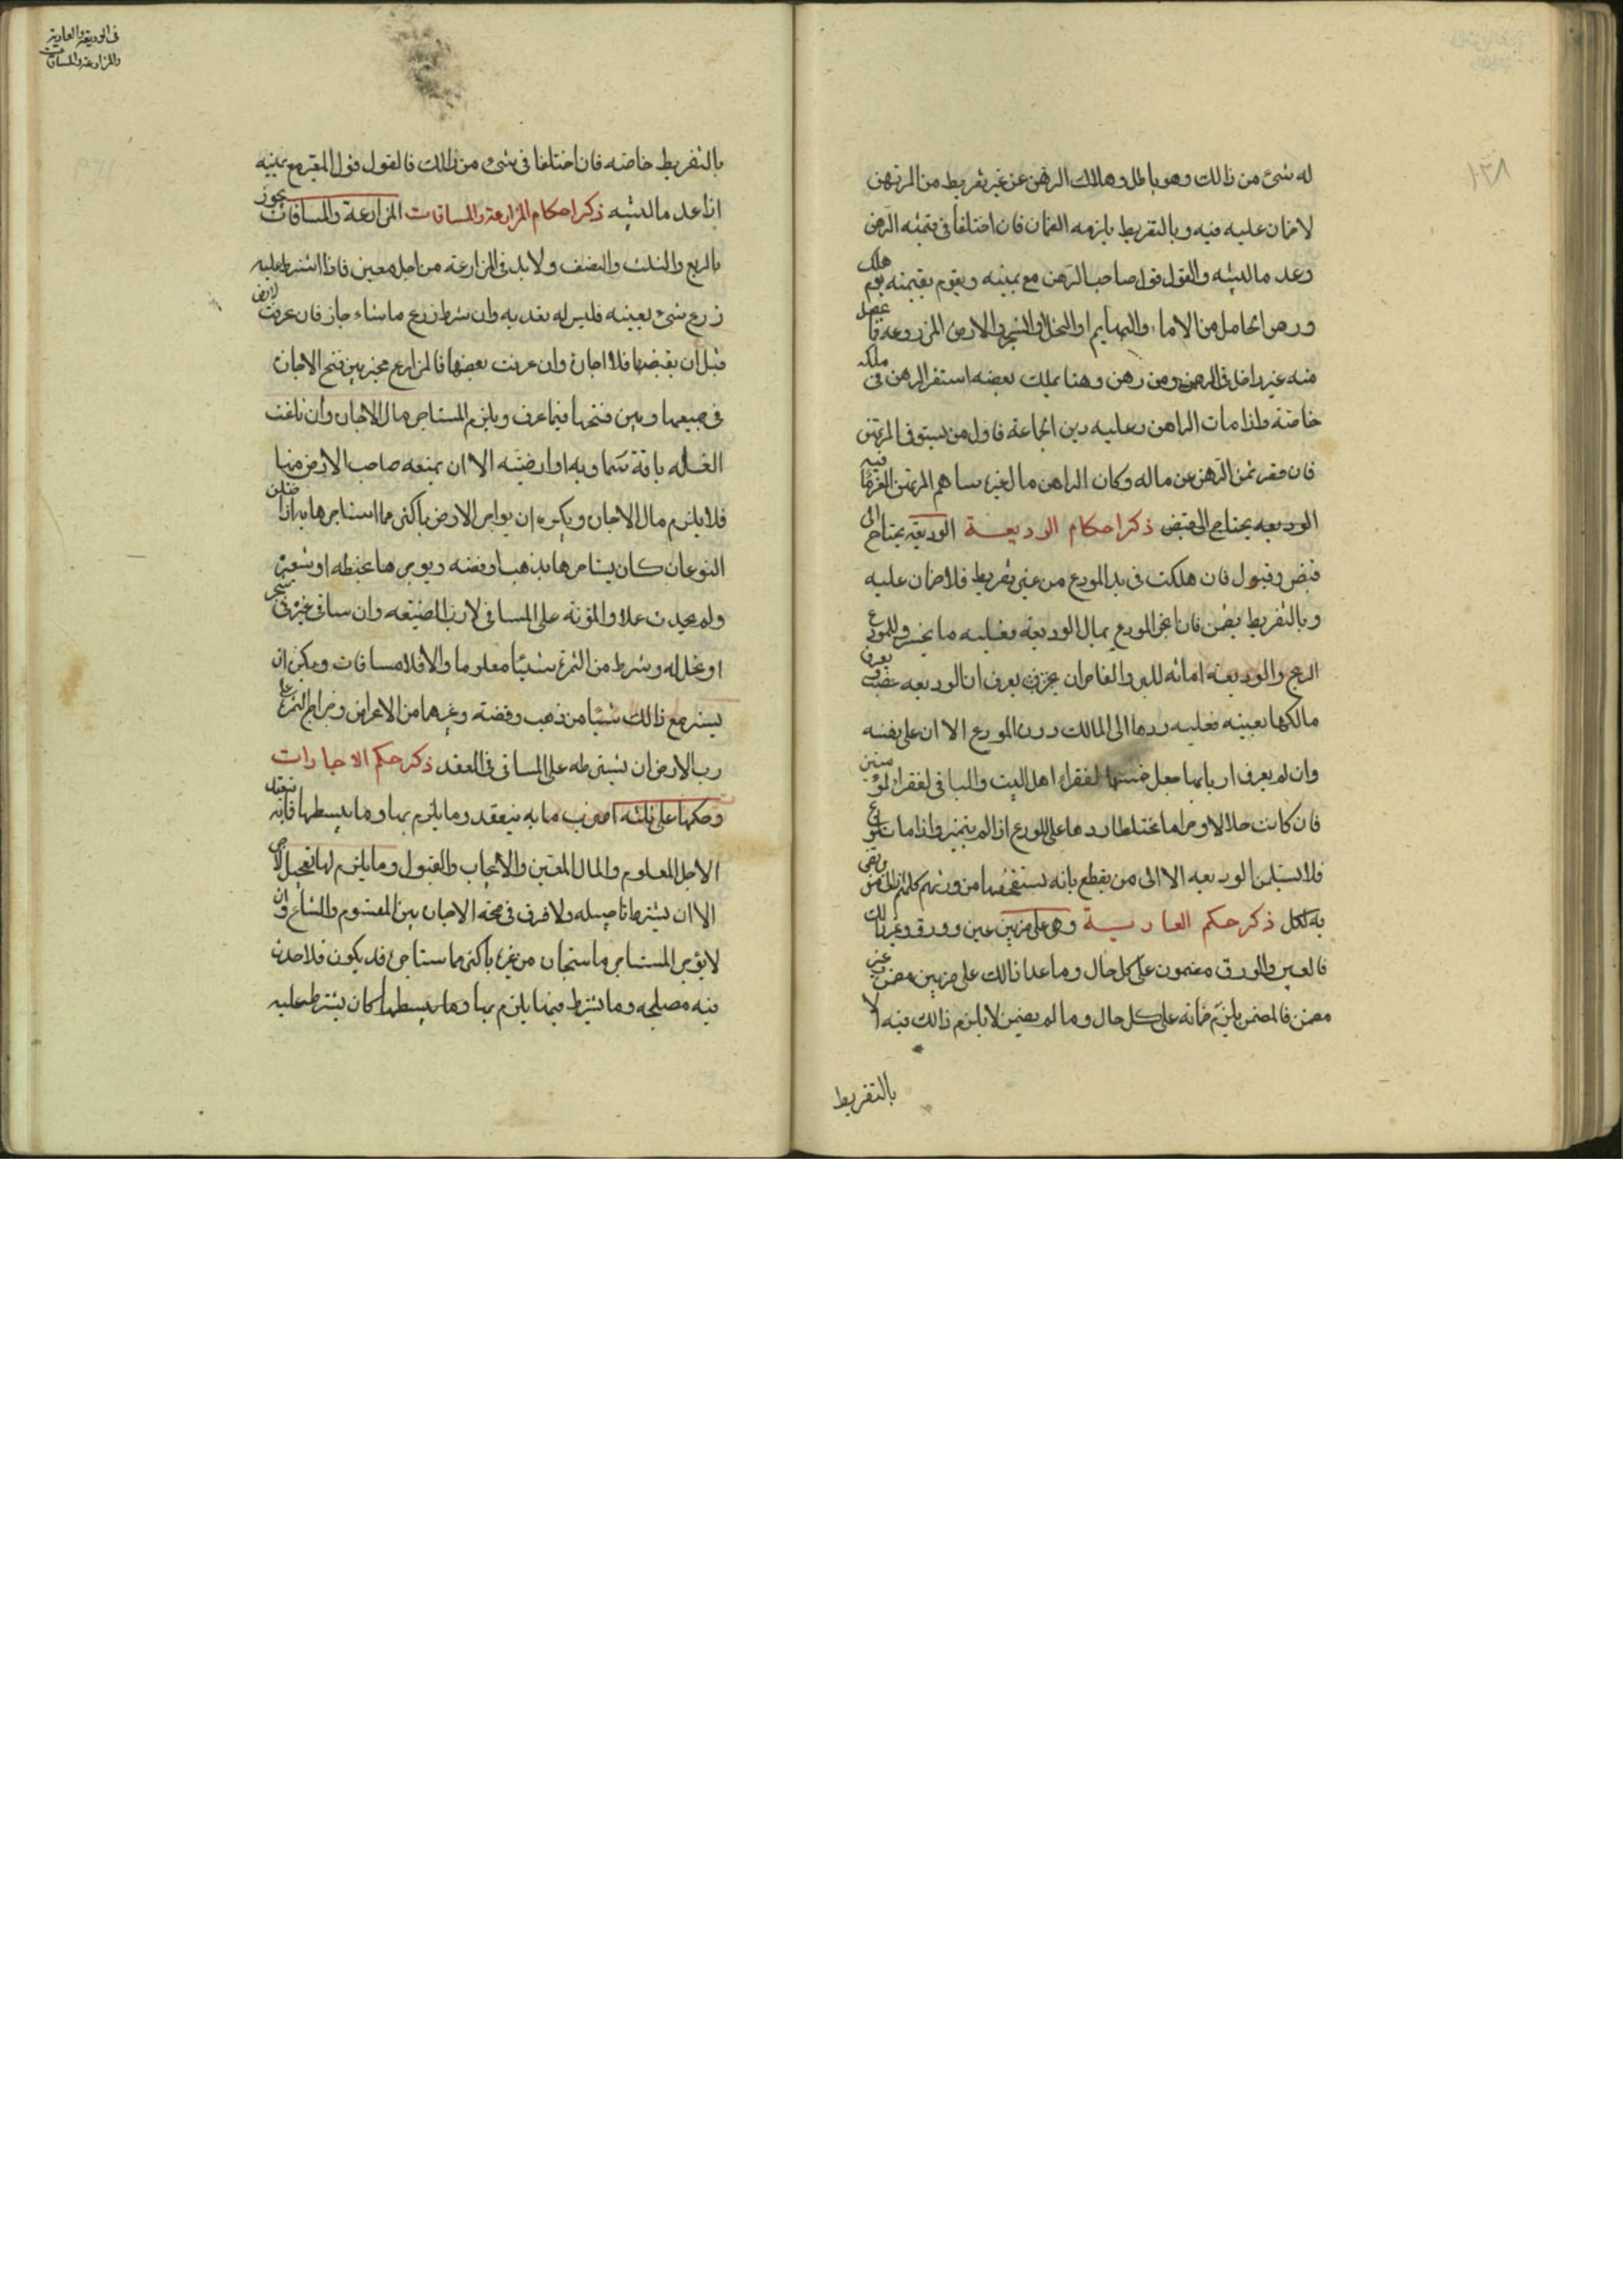 ١٣٨
له شئ من ذالك وهو باطل وهلاك الرهن عن غير تفريط من المرتهن
لا ضمان عليه فيه وبالتفريط يلزمه الضمان فان اختلفا في قيمته الرهن
وعد مالبينه والقول قول صاحب الرهن مع يمينه ويقوم بقيمته يوم هلك
ورهن الحامل من الاماء والبهايم او النخل او الشجر والارض المزروعه فا حصل
منه غير داخل في الرهن ومن رهن وهنا يملك بعضه استقر الرهن في ملكه
خاصة واذا مات الراهن وعليه دين الجماعة فاول من يستوفي المرتهن
فان قصر ثمن الرهن عن ماله وكان الراهن مال غيره ساهم المرتهن الغرما فيه
الوديعه يحتاج الى قبض ذكر احكام الوديعة الوديعه يحتاج الى
قبض وقبول فان هلكت في يد المودع من غير تفريط فلا ضمان عليه
وبالتفريط يضمن فان اتجر المودع بمال الوديعه فعليه ما يخسر وللمودع
الربح والوديعة امانه للبر والفاجر ان يعرف ان الوديعه غصب ويعرف
مالكها بعينه فعليه ردها الى المالك دون المودع الا ان على نفسه
وان لم يعرف اربابها جعل خمسها لفقراء اهل البيت والباقي لفقراء المؤمنين
فان كانت حلالا وحراما مختلطا ردها على المودع اذا لم يتميز واذا مات المودع
فلا يسلمن الوديعه الا الى من يقطع بانه يستحقها من ورثتهم كلهم او الى من رضى
به الكل ذكر حكم العارية وهو على ضربين عين وورق وغير ذالك
فالعين والورق مضمون على كل حال وما عدا ذالك على ضربين مضمن وغير
مضمن فالمضمن يلزم ضمانه على كل حال وما لم يضمن لا يلزم ذالك فيه الا
بالتفريط
في الوديعة والعارية
والمزارعة والمساقات
بالتفريط خاصه فان اختلفا في شئ من ذالك فالقول قول المقر مع يمينه
اذا عد مالبينه ذكر احكام المزارعة والمساقات المزارعة والمساقات يجوز
بالربع والثلث والنصف ولابد في المزارعه من اجل معين فاذا اشترط عليه
زرع شئ بعينه فليس له تعديه وان شرط زرع ما شاء جاز فان غرقت الارض
قبل ان يقبضها فلا اجارة وان غرقت بعضها فالمزارع مخير بين فسخ الاجارة
في جميعها وبين فسخها فيما غرق ويلزم المستاجر مال الاجارة وان تلفت
الغله بافة سماويه او ارضيه الا ان يمنعه صاحب الارض منها
فلا يلزم مال الاجارة ويكره ان يواجر الارض باكثر مما استاجرها به اذا اختلف
النوعان كان يستاجرها بذهب او فضه ويوجرها بحنطه او شعير
ولم يحدث عملا والمؤنة على المساقي لا رب الضيعه وان ساقى غيره في شجر
او نخل له وشرط من الثمرة شيئا معلوما والا فلا مساقات ويكره ان
يشترط مع ذالك شيئا من ذهب وفضه وغيرها من الاعراض وخراج الثمرة على
رب الارض ان يشترطه على المساقي في العقد ذكر حكم الاجارات
وحكمها على ثلثه اضرب ما به ينعقد وما يلزم بها وما يبطلها فانه ينعقد
الاجل المعلوم والمال المعين والايجاب والقبول وما يلزم لها تعجيل الاجر
الا ان يشترط تاجيله ولا فرق في صحة الاجارة بين المقسوم والمشاع وان
لا يؤجر المستاجر ما استجاره من غيره باكثر مما استاجره قد يكون فلا حدث
فيه مصلحه وما يشترط فيما يلزم بها وما يبطلها كان يشترط عليه